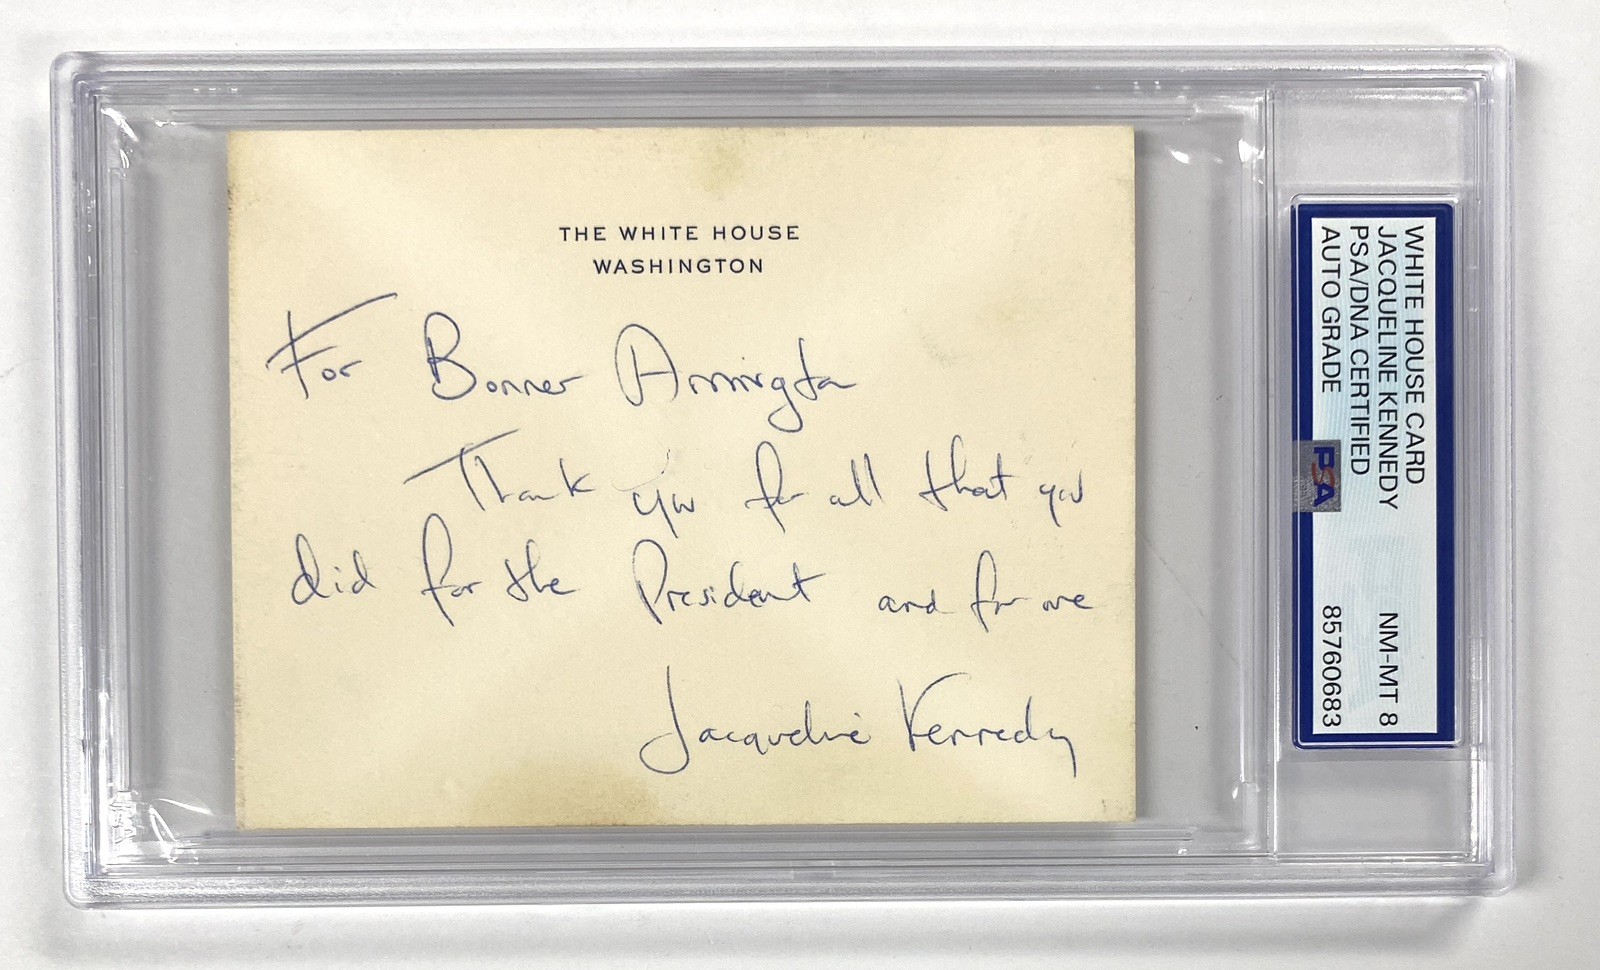 THE WHITE HOUSE
WASHINGTON
For Bonner Arrington
Thank you for all that you
did for the President and for me
Jacqueline Kennedy
WHITE HOUSE CARD
JACQUELINE KENNEDY NM-MT 8
PSA/DNA CERTIFIED
AUTO GRADE 85760683
PSA